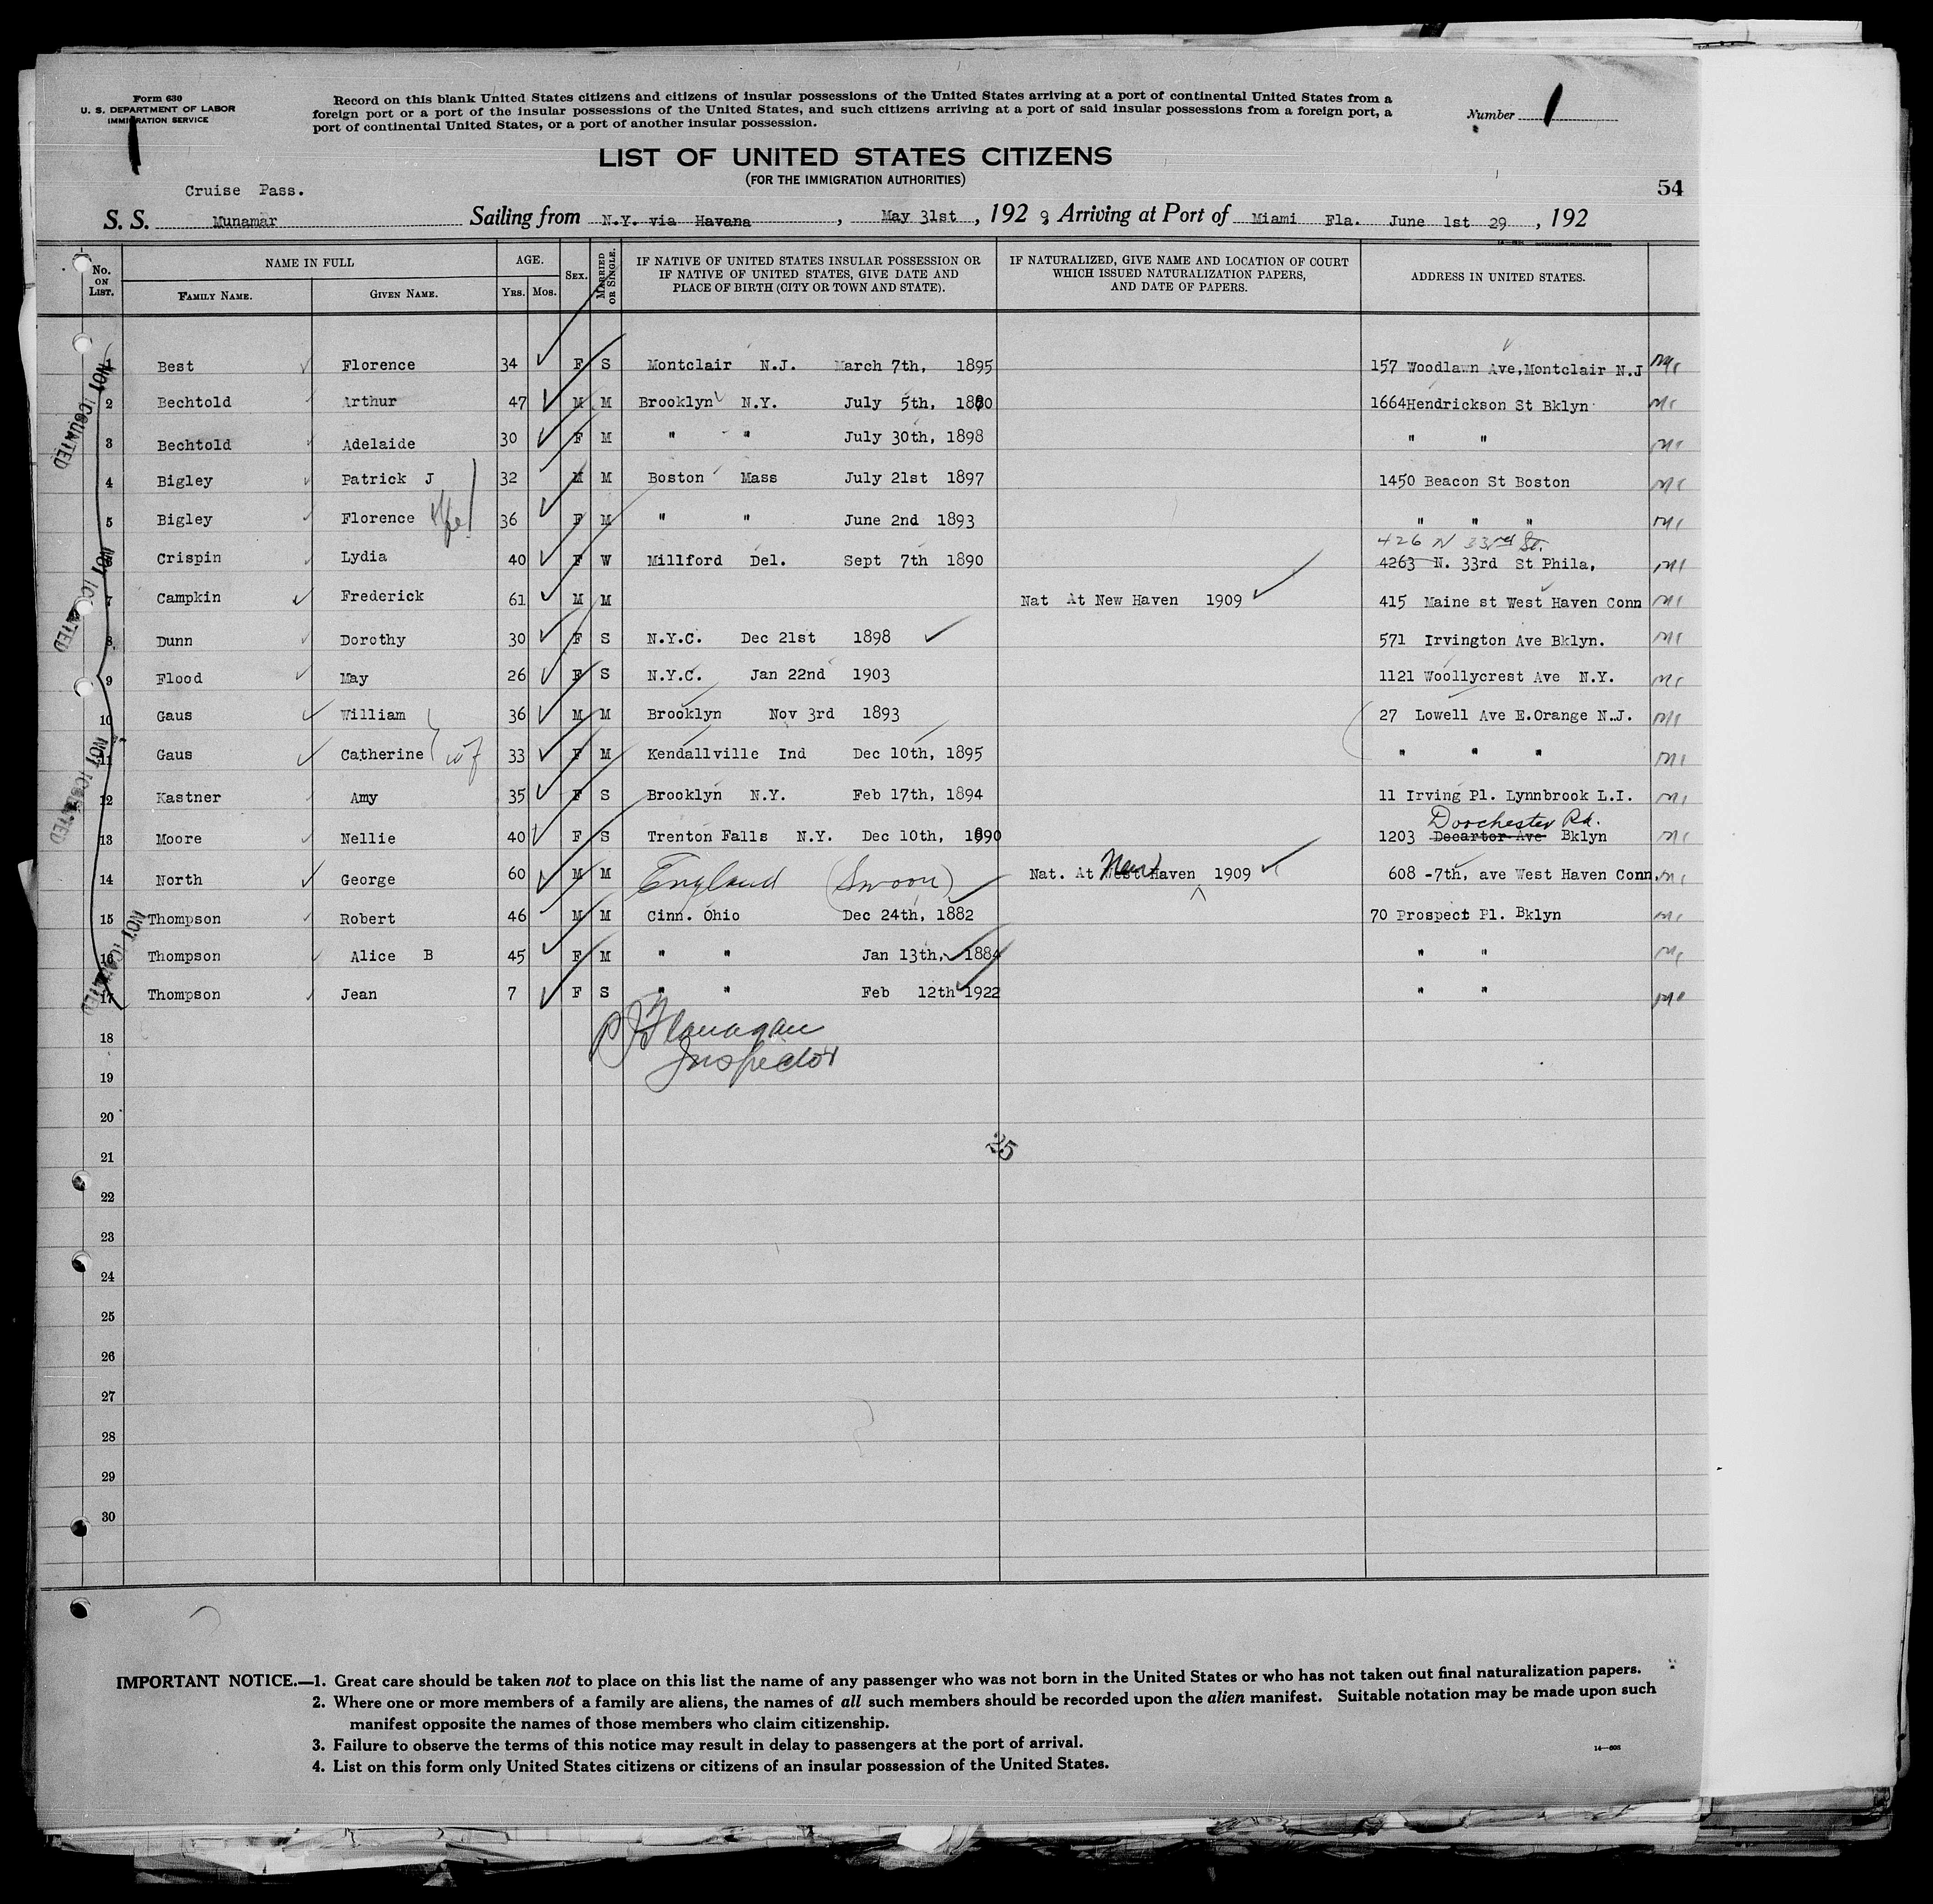 Form 630
U. S. DEPARTMENT OF LABOR
IMMIGRATION SERVICE
Record on this blank United States citizens and citizens of insular possessions of the United States arriving at a port of continental United States from a
foreign port or a port of the insular possessions of the United States, and such citizens arriving at a port of said insular possessions from a foreign port, a
port of continental United States, or a port of another insular possession.
Number 1
LIST OF UNITED STATES CITIZENS
(FOR THE IMMIGRATION AUTHORITIES)
54
Cruise Pass.
S. S. Munamar Sailing from N.Y. via Havana, May 31st, 1929, Arriving at Port of Miami Fla. June 1st 29, 192
No. ON LIST. NAME IN FULL FAMILY NAME. GIVEN NAME. AGE. Yrs. Mos. SEX. MARRIED OR SINGLE. IF NATIVE OF UNITED STATES INSULAR POSSESSION OR IF NATIVE OF UNITED STATES, GIVE DATE AND PLACE OF BIRTH (CITY OR TOWN AND STATE). IF NATURALIZED, GIVE NAME AND LOCATION OF COURT WHICH ISSUED NATURALIZATION PAPERS, AND DATE OF PAPERS. ADDRESS IN UNITED STATES.
1 Best Florence 34 F S Montclair N.J. March 7th, 1895 157 Woodlawn Ave,Montclair N.J
2 Bechtold Arthur 47 M M Brooklyn N.Y. July 5th, 1880 1664Hendrickson St Bklyn
3 Bechtold Adelaide 30 F M " " July 30th, 1898 " "
4 Bigley Patrick J 32 M M Boston Mass July 21st 1897 1450 Beacon St Boston
5 Bigley Florence 36 F M " " June 2nd 1893 " " "
426 N 33rd St.
6 Crispin Lydia 40 F W Millford Del. Sept 7th 1890 4263 N. 33rd St Phila,
7 Campkin Frederick 61 M M Nat At New Haven 1909 415 Maine st West Haven Conn
8 Dunn Dorothy 30 F S N.Y.C. Dec 21st 1898 571 Irvington Ave Bklyn.
9 Flood May 26 F S N.Y.C. Jan 22nd 1903 1121 Woollycrest Ave N.Y.
10 Gaus William 36 M M Brooklyn Nov 3rd 1893 27 Lowell Ave E.Orange N.J.
11 Gaus Catherine wf 33 F M Kendallville Ind Dec 10th, 1895 " " "
12 Kastner Amy 35 F S Brooklyn N.Y. Feb 17th, 1894 11 Irving Pl. Lynnbrook L.I.
Dorchester Rd.
13 Moore Nellie 40 F S Trenton Falls N.Y. Dec 10th, 1890 1203 Decartor Ave Bklyn
14 North George 60 M M England Nat. At New West Haven 1909 608 -7th, ave West Haven Conn.
15 Thompson Robert 46 M M Cinn. Ohio Dec 24th, 1882 70 Prospect Pl. Bklyn
16 Thompson Alice B 45 F M " " Jan 13th, 1884 " "
17 Thompson Jean 7 F S " " Feb 12th 1922 " "
NOT
NOT
NOT
NOT
P J Flanagan
Inspector
18
19
20
25
21
22
23
24
25
26
27
28
29
30
IMPORTANT NOTICE.—1. Great care should be taken not to place on this list the name of any passenger who was not born in the United States or who has not taken out final naturalization papers.
2. Where one or more members of a family are aliens, the names of all such members should be recorded upon the alien manifest. Suitable notation may be made upon such
manifest opposite the names of those members who claim citizenship.
3. Failure to observe the terms of this notice may result in delay to passengers at the port of arrival.
4. List on this form only United States citizens or citizens of an insular possession of the United States.